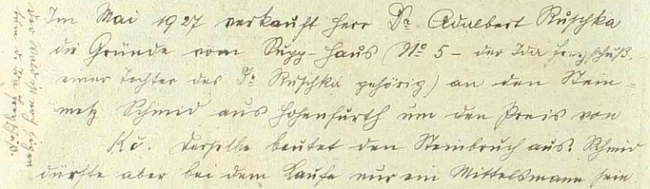 Im Mai 1927 verkauft Herr Dr. Adalbert Ruschka
die Gründe vom Supp-Haus (No 5 - der Ida
einer Tochter des Dr. Ruschka gehörig) an den Stein=
metz Schmid aus Hohenfurth um den Preis von
Kč. Derselbe beutet den Steinbruch aus. Schmid
dürfte aber bei dem Kaufe nur ein Mittelsmann sein